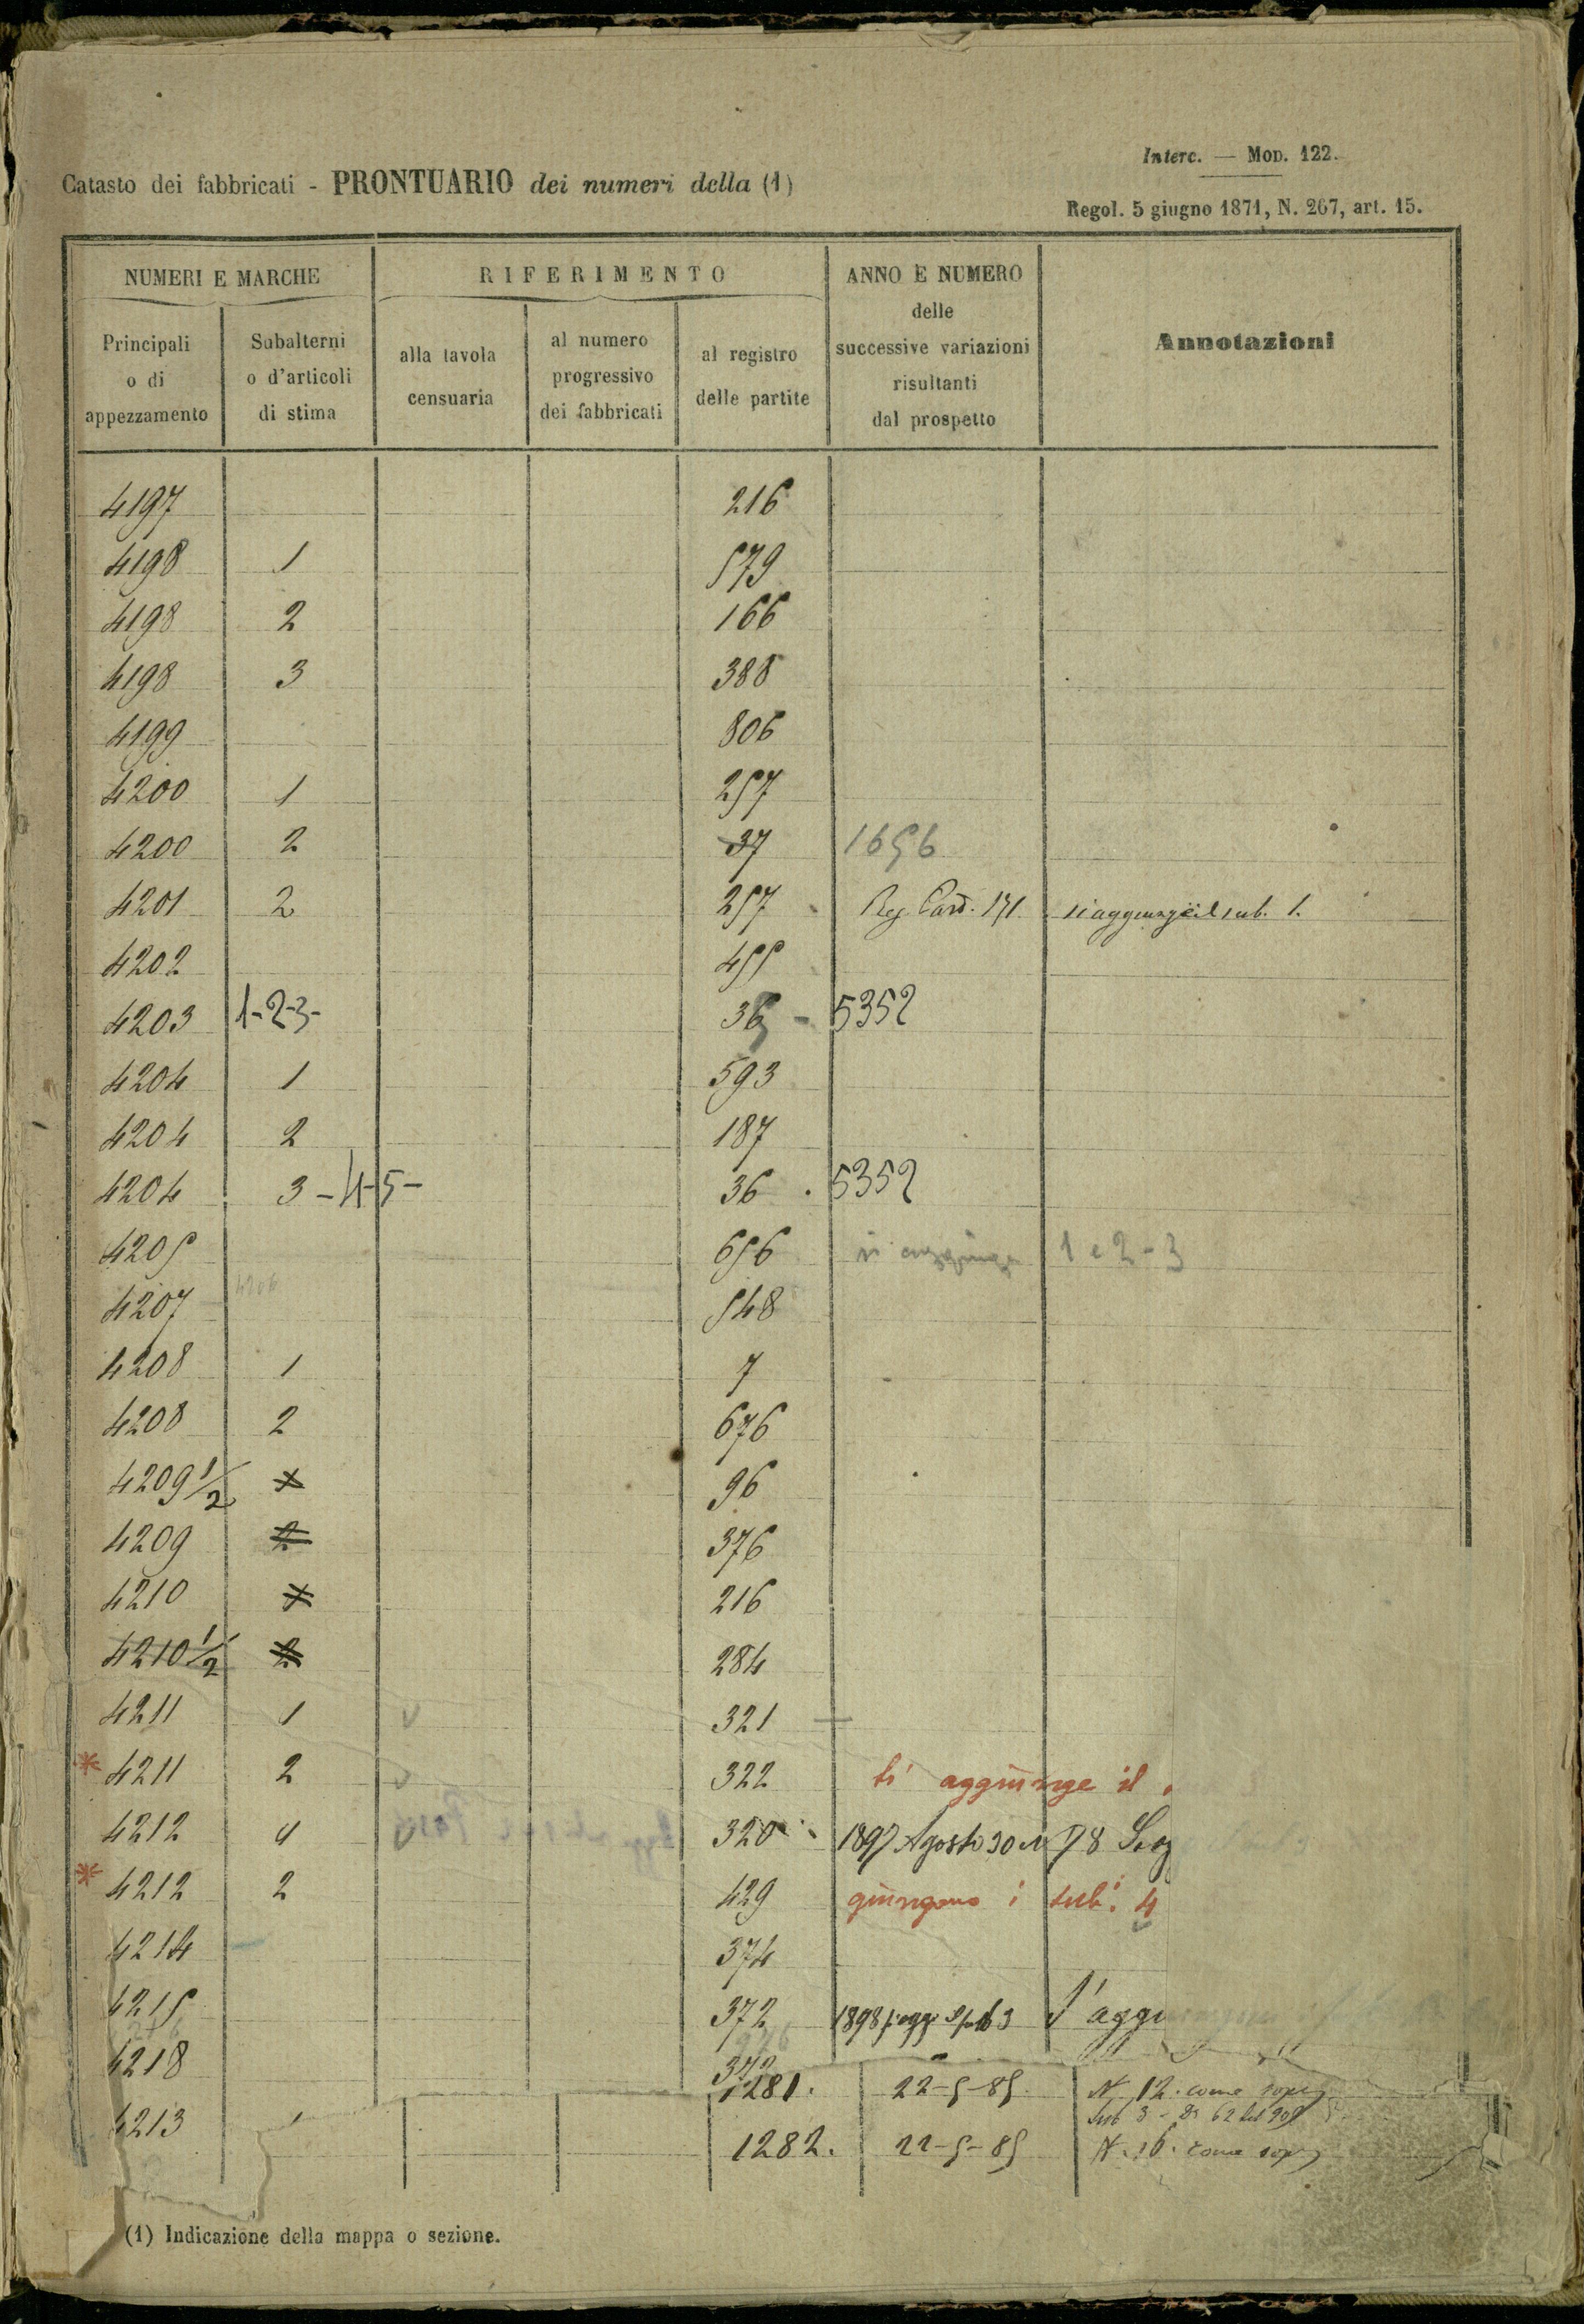 Interc. — Mod. 122.
Catasto dei fabbricati - PRONTUARIO dei numeri della (1)
Regol. 5 giugno 1871, N. 267, art. 15.
NUMERI E MARCHE
RIFERIMENTO
ANNO E NUMERO
delle
successive variazioni
risultanti
dal prospetto
Annotazioni
Principali
o di
appezzamento
Subalterni
o d'articoli
di stima
alla tavola
censuaria
al numero
progressivo
dei fabbricati
al registro
delle partite
4197 216
4198 1 579
4198 2 166
4198 3 388
4199 806
4200 1 257
4200 2 37 1656
4201 2 257 Reg. Part. 171 si aggiunge il sub. 1.
4202 455
4203 1-2-3- 36 - 5352
4204 1 593
4204 2 187
4204 3-4-5- 36 . 5352
4205 656 si aggiunge 1 e 2-3
4206
4207 548
4208 1 7
4208 2 676
4209 1/2 96
4209 2 376
4210 216
4210 1/2 2 284
4211 1 321
* 4211 2 322 si aggiunge il
4212 320 1897 Agosto 30 N 78
* 4212 2 429 giungono i sub. 4
4214 374
4215 372 1898 S'aggiu
4218 372
1281. 22-5-85. N. 12. come sopra
4213
1282. 22-5-85 N. 16. come sopra
(1) Indicazione della mappa o sezione.